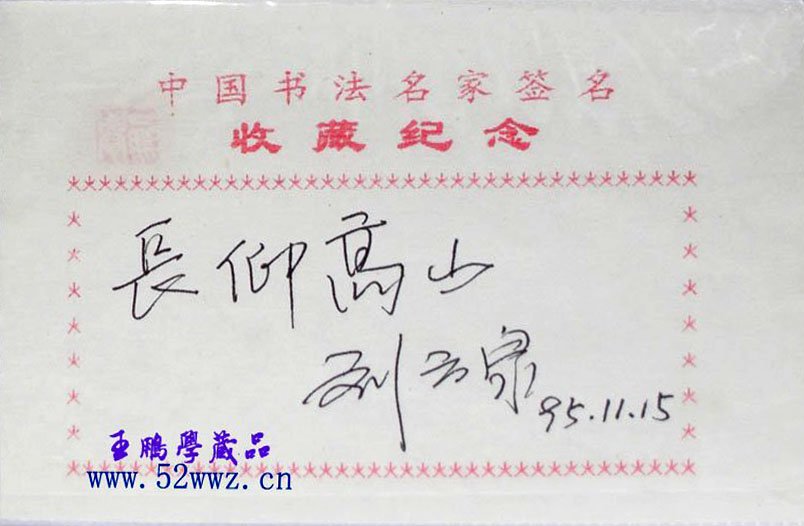 中国书法名家签名
收藏纪念
長仰高山
刘云泉
95.11.15
王鵬學藏品
www.52wwz.cn